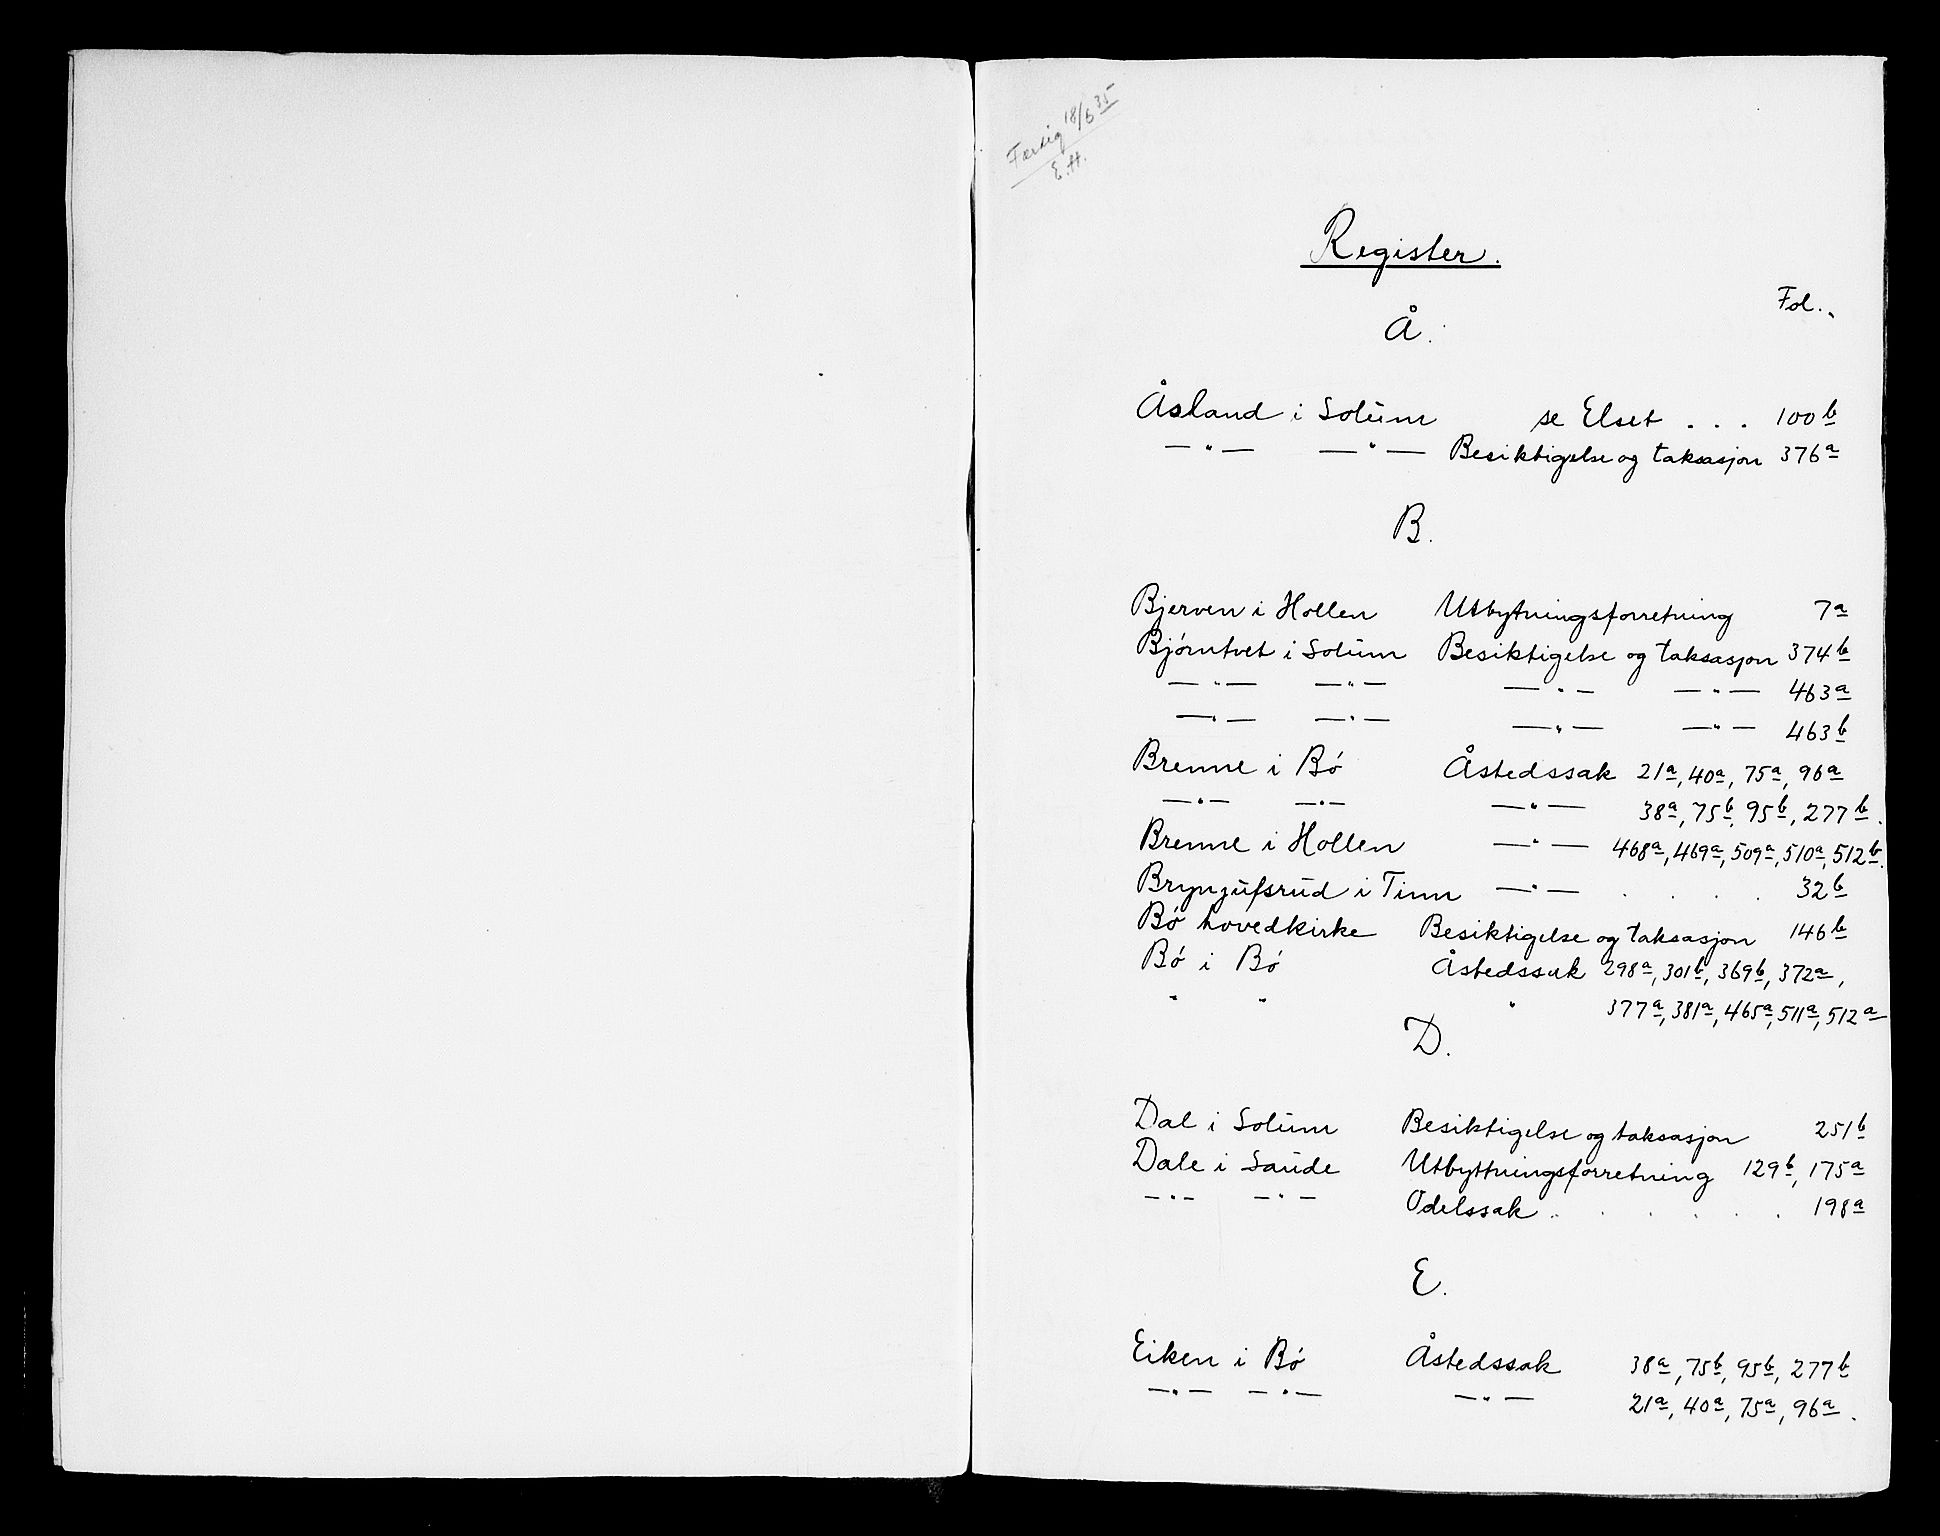 Færdig 18/6 35
E.H.
Register.
Fol.
Å.
Åsland i Solum se Elset . . . 100 b
—"— —"— Besiktigelse og taksasjon 376 a
B.
Bjerven i Hollen Utbytningsforretning 7 a
Bjørntvet i Solum Besiktigelse og taksasjon 374 b
—"— —"— —"— —"— 463 a
—"— —"— —"— —"— 463 b
Brenne i Bø Åstedssak 21 a, 40 a, 75 a, 96 a
—"— —"— —"— 38 a, 75 b, 95 b, 277 b.
Brenne i Hollen —"— 468 a, 469 a, 509 a, 510 a, 512 b.
Bryngufsrud i Tinn —"— . . . . 32 b
Bø hovedkirke Besiktigelse og taksasjon 146 b
Bø i Bø Åstedssak 298 a, 301 b, 369 b, 372 a,
" " " 377 a, 381 a, 465 a, 511 a, 512 a
D.
Dal i Solum Besiktigelse og taksasjon 251 b
Dale i Saude Utbyttningsforretning 129 b, 175 a
—"— —"— Odelssak . . . . . . 198 a
E.
Eiken i Bø Åstedssak 38 a, 75 b, 95 b, 277 b
—"— —"— —"— 21 a, 40 a, 75 a, 96 a.